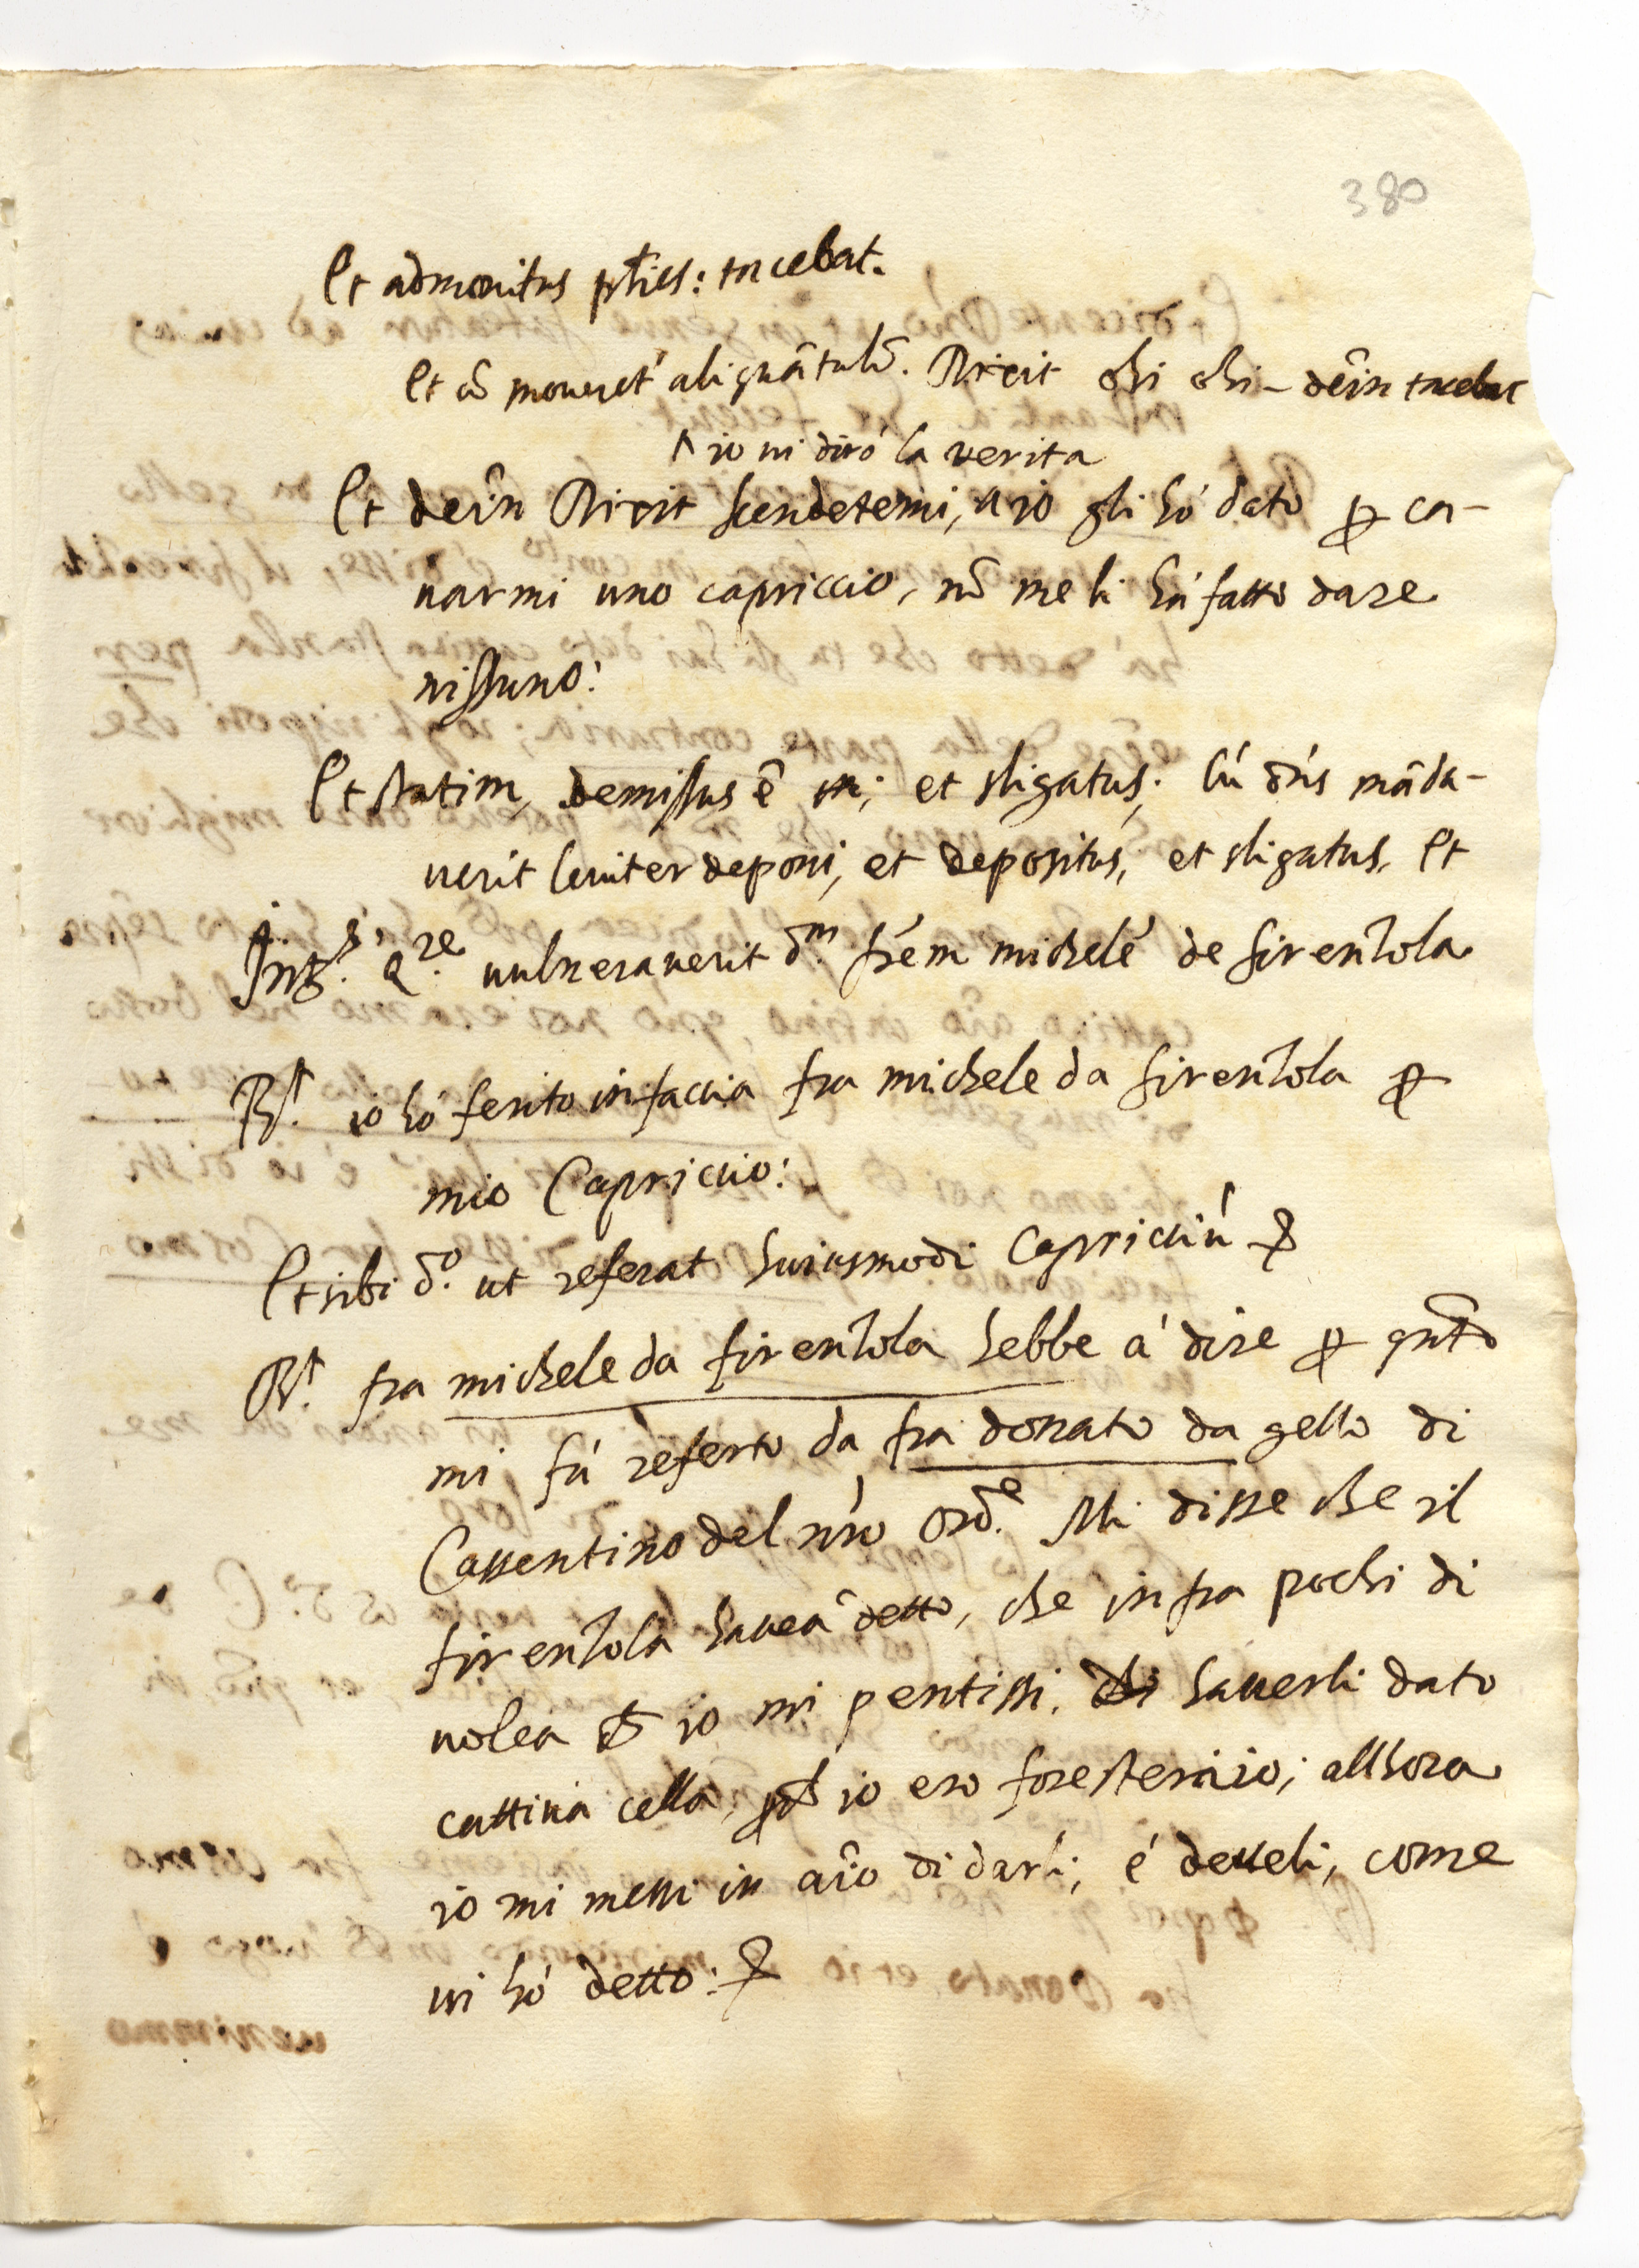 380
Et admonitus pluries: tacebat.
Et cũ moueret' aliquãtulũ. Dixit ohi ohi - deîn tacebat
^ io ui dirò la uerita
Et deîn Dixit scendetemi, ^ io gli hó dato p ca-
uarmi uno capriccio, nõ me li há fatto dare
nissuno:
Et statim, demissus ê et sligatus; Cú dńs mãda-
uerit leuiter deponi, et depositus, et sligatus, Et
Int.s Q.re uulnerauerit d.m frêm michelê de firenzola
R.t io hó ferito in faccia fra michele da firenzola p
mio Capriccio:
Et sibi d.o ut referat huiusmodi Capricciú
R.t fra michele da firenzola hebbe á dire p qnto
mi fú referto da fra donato da gello di
Casentino del nŕo Ord.e Mi disse che il
firenzola hauea detto, che infra pochi di
uolea io mi pentissi, di hauerli dato
cattiua cella, io ero foresteraio; allhora
io mi messi in aîo di darli; é detteli, come
ui hó detto: